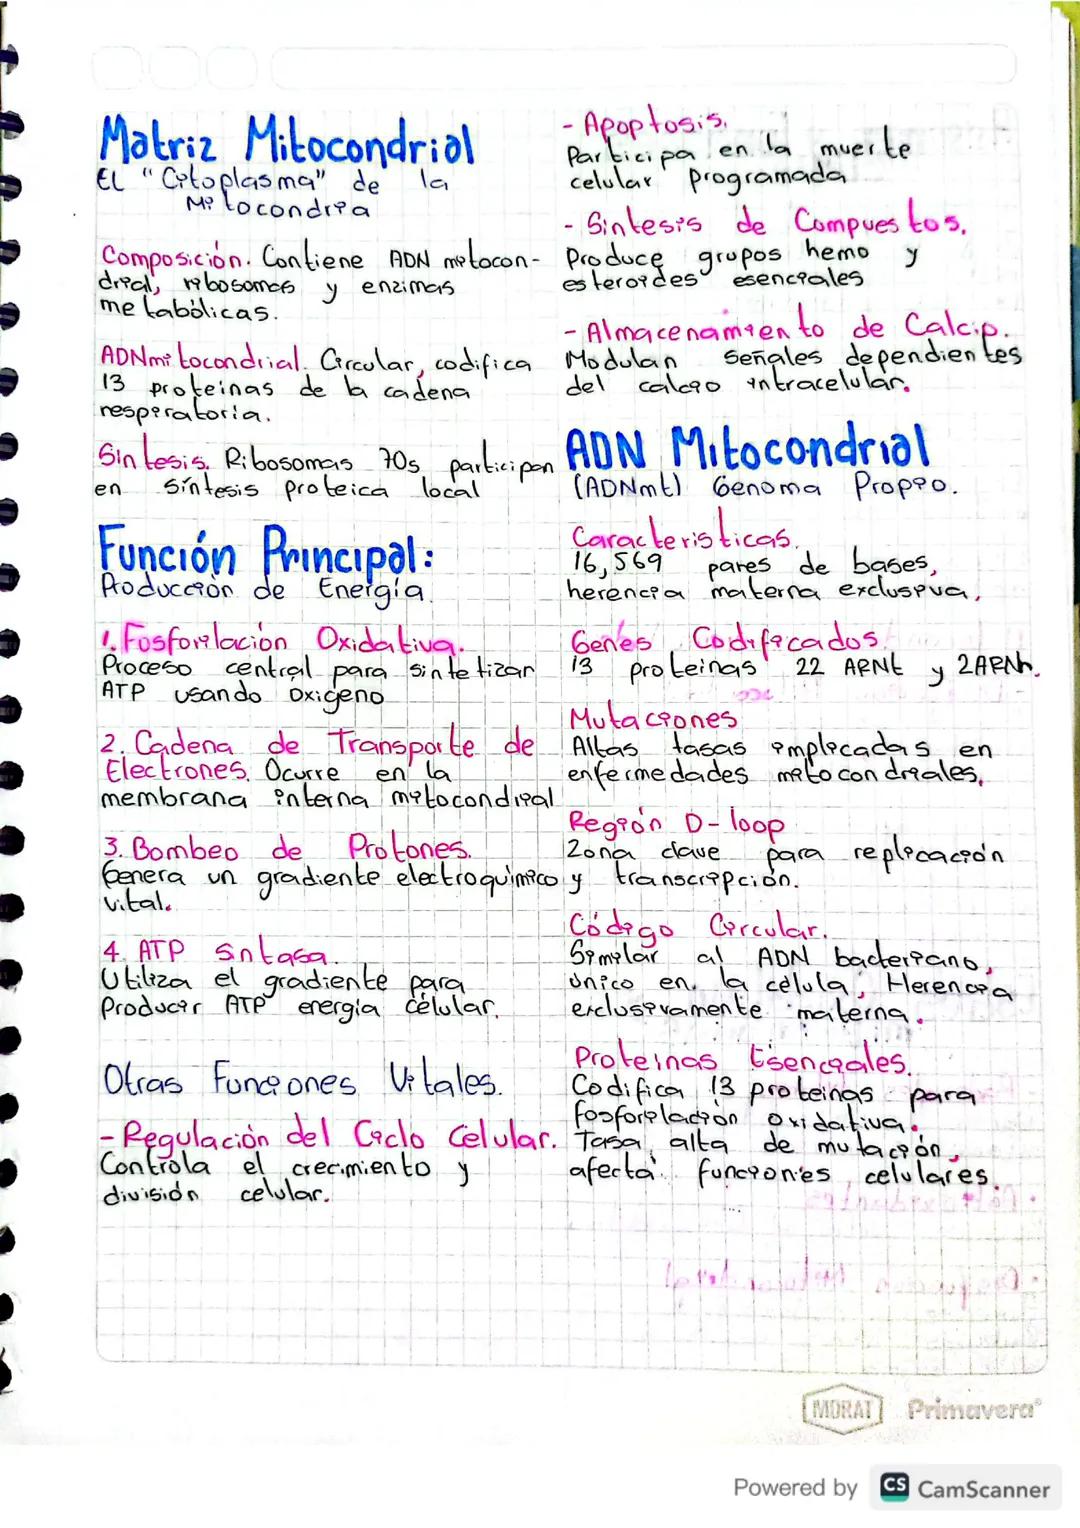 Matriz Mitocondrial
El "Citoplasma" de la
Mitocondria
Composición. Contiene ADN mitocon-
drial, ribosomas y enzimas
metabólicas.
ADN mitocondrial. Circular, codifica
13 proteinas de la cadena
respiratoria.
Sintesis. Ribosomas 70s participan
en síntesis proteica local
Función Principal:
Producción de Energía.
1. Fosforilación Oxidativa.
Proceso central para sintetizar
ATP usando oxigeno
2. Cadena de Transporte de
Electrones. Ocurre en la
membrana interna mitocondrial
3. Bombeo de Protones.
Genera un gradiente electroquimico
vital.
4. ATP sintasa.
Utiliza el gradiente para
Producir ATP energia célular.
Otras Funciones Vitales.
- Regulación del Ciclo Celular.
Controla el crecimiento y
división celular.
- Apoptosis.
Participa en la muerte
celular programada
- Sintesis de Compuestos.
Produce grupos hemo y
esteroides esenciales
- Almacenamiento de Calcio.
Modulan señales dependientes
del calcio intracelular.
ADN Mitocondrial
(ADNmt) Genoma Propio.
Caracteristicas.
16,569 pares de bases,
herencia materna exclusiva.
Genes Codificados.
13 proteinas 22 ARNt y 2ARNh.
Mutaciones
Altas tasas implicadas en
enfermedades mitocondriales.
Región D-loop
Zona clave para replicación
y transcripción.
Código Circular.
Similar al ADN bacteriano,
único en la célula, Herencia
exclusivamente materna.
Proteinas Esenciales.
Codifica 13 proteinas para
fosforilación oxidativa.
Tasa alta de mutación,
afecta funciones celulares.
MORAT Primavera®
Powered by CS CamScanner